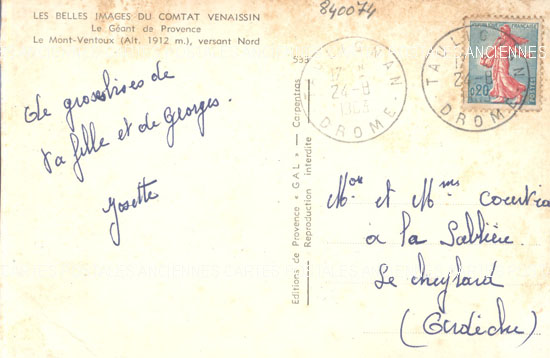 LES BELLES IMAGES DU COMTAT VENAISSIN
Le Géant de Provence
Le Mont-Ventoux (Alt. 1912 m.), versant Nord
840074
533
De grosses bises de
ta fille et de Georges.
Josette
Editions de Provence « GAL » — Carpentras
Reproduction interdite
TAULIGNAN
24-8
DROME
0,20
TAULIGNAN
24-8
DROME
Mr et Mme
à la Sablière
Le Cheylard
(Ardèche)